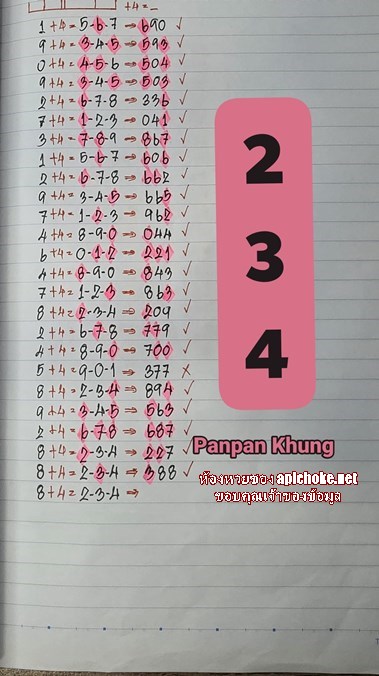 +4=
1+4= 5-6-7 ⇒ 690 ✓
9+4= 3-4-5 ⇒ 593 ✓
0+4= 4-5-6 ⇒ 504 ✓
9+4= 3-4-5 ⇒ 503 ✓
2+4= 6-7-8 ⇒ 336 ✓
7+4= 1-2-3 ⇒ 041 ✓
3+4= 7-8-9 ⇒ 867 ✓
1+4= 5-6-7 ⇒ 606 ✓
2+4= 6-7-8 ⇒ 662 ✓
9+4= 3-4-5 ⇒ 665 ✓
7+4= 1-2-3 ⇒ 962 ✓
4+4= 8-9-0 ⇒ 044 ✓
6+4= 0-1-2 ⇒ 221 ✓
4+4= 8-9-0 ⇒ 843 ✓
7+4= 1-2-3 ⇒ 863 ✓
8+4= 2-3-4 ⇒ 209 ✓
2+4= 6-7-8 ⇒ 779 ✓
4+4= 8-9-0 ⇒ 700 ✓
5+4= 9-0-1 ⇒ 377 ✗
8+4= 2-3-4 ⇒ 894 ✓
9+4= 3-4-5 ⇒ 563 ✓
2+4= 6-7-8 ⇒ 687 ✓
8+4= 2-3-4 ⇒ 227 ✓
8+4= 2-3-4 ⇒ 388 ✓
8+4= 2-3-4 ⇒
2
3
4
Panpan Khung
ห้องหวยซอง apichoke.net
ขอบคุณเจ้าของข้อมูล